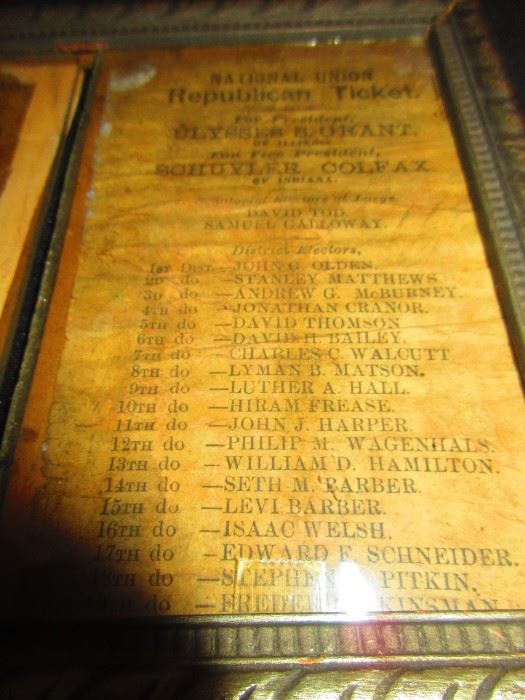 NATIONAL UNION
Republican Ticket.
For President,
ULYSSES S. GRANT.
OF ILLINOIS
For Vice President,
SCHUYLER COLFAX
OF INDIANA.
Senatorial Electors at Large,
DAVID TOD.
SAMUEL GALLOWAY.
District Electors,
1ST DIST—JOHN G. OLDEN.
2D do —STANLEY MATTHEWS.
3D do —ANDREW G. McBURNEY.
4TH do —JONATHAN CRANOR.
5TH do —DAVID THOMSON
6TH do —DAVID H. BAILEY.
7TH do —CHARLES C. WALCUTT
8TH do —LYMAN B. MATSON.
9TH do —LUTHER A. HALL.
10TH do —HIRAM FREASE.
11TH do —JOHN J. HARPER.
12TH do —PHILIP M. WAGENHALS.
13TH do —WILLIAM D. HAMILTON.
14TH do —SETH M. BARBER.
15TH do —LEVI BARBER.
16TH do —ISAAC WELSH.
17TH do —EDWARD F. SCHNEIDER.
18TH do —STEPHEN PITKIN.
do —FREDER KINSMAN